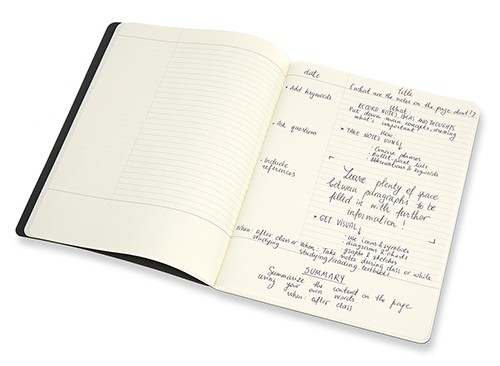 date
title
[what are the notes on the page about?]
• Add keywords
What:
RECORD NOTES, IDEAS AND THOUGHTS
Put down main concepts, drawing
what's important
• Ask questions
How:
• TAKE NOTES, USING
• Concise phrases
• Bullet point lists
• Abbreviations & keywords
• Include
references
Leave plenty of space
between paragraphs to be
filled in with further
information!
• GET VISUAL
• Use icons & symbols
• diagrams & charts
• graphs & sketches
When: after class or when
studying
When: Take notes during class or while
studying/reading textbooks
SUMMARY
Summarize the content on the page
using your own words
when: after class